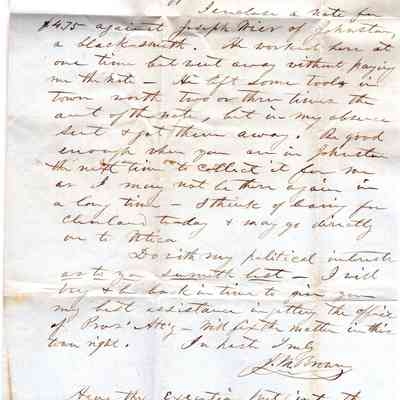 I enclose a note for
$4.75 against Joseph Wier of Johnston,
a blacksmith. He worked here at
one time but went away without paying
me the note - He left some tools in
town worth two or three times the
amt of the note, but in my absence
sent & got them away. Be good
enough when you are in Johnston
the next time to collect it for me
as I may not be there again in
a long time - I think of leaving for
Cleveland today & may go directly
on to Utica
Do with my political interests
as to you seemeth best - I will
try & be back in time to give you
my best assistance in getting the office
of Pros. Att'y - Will fix the matter in this
town right. In haste Truly
J. M. Brown
Have the Execution